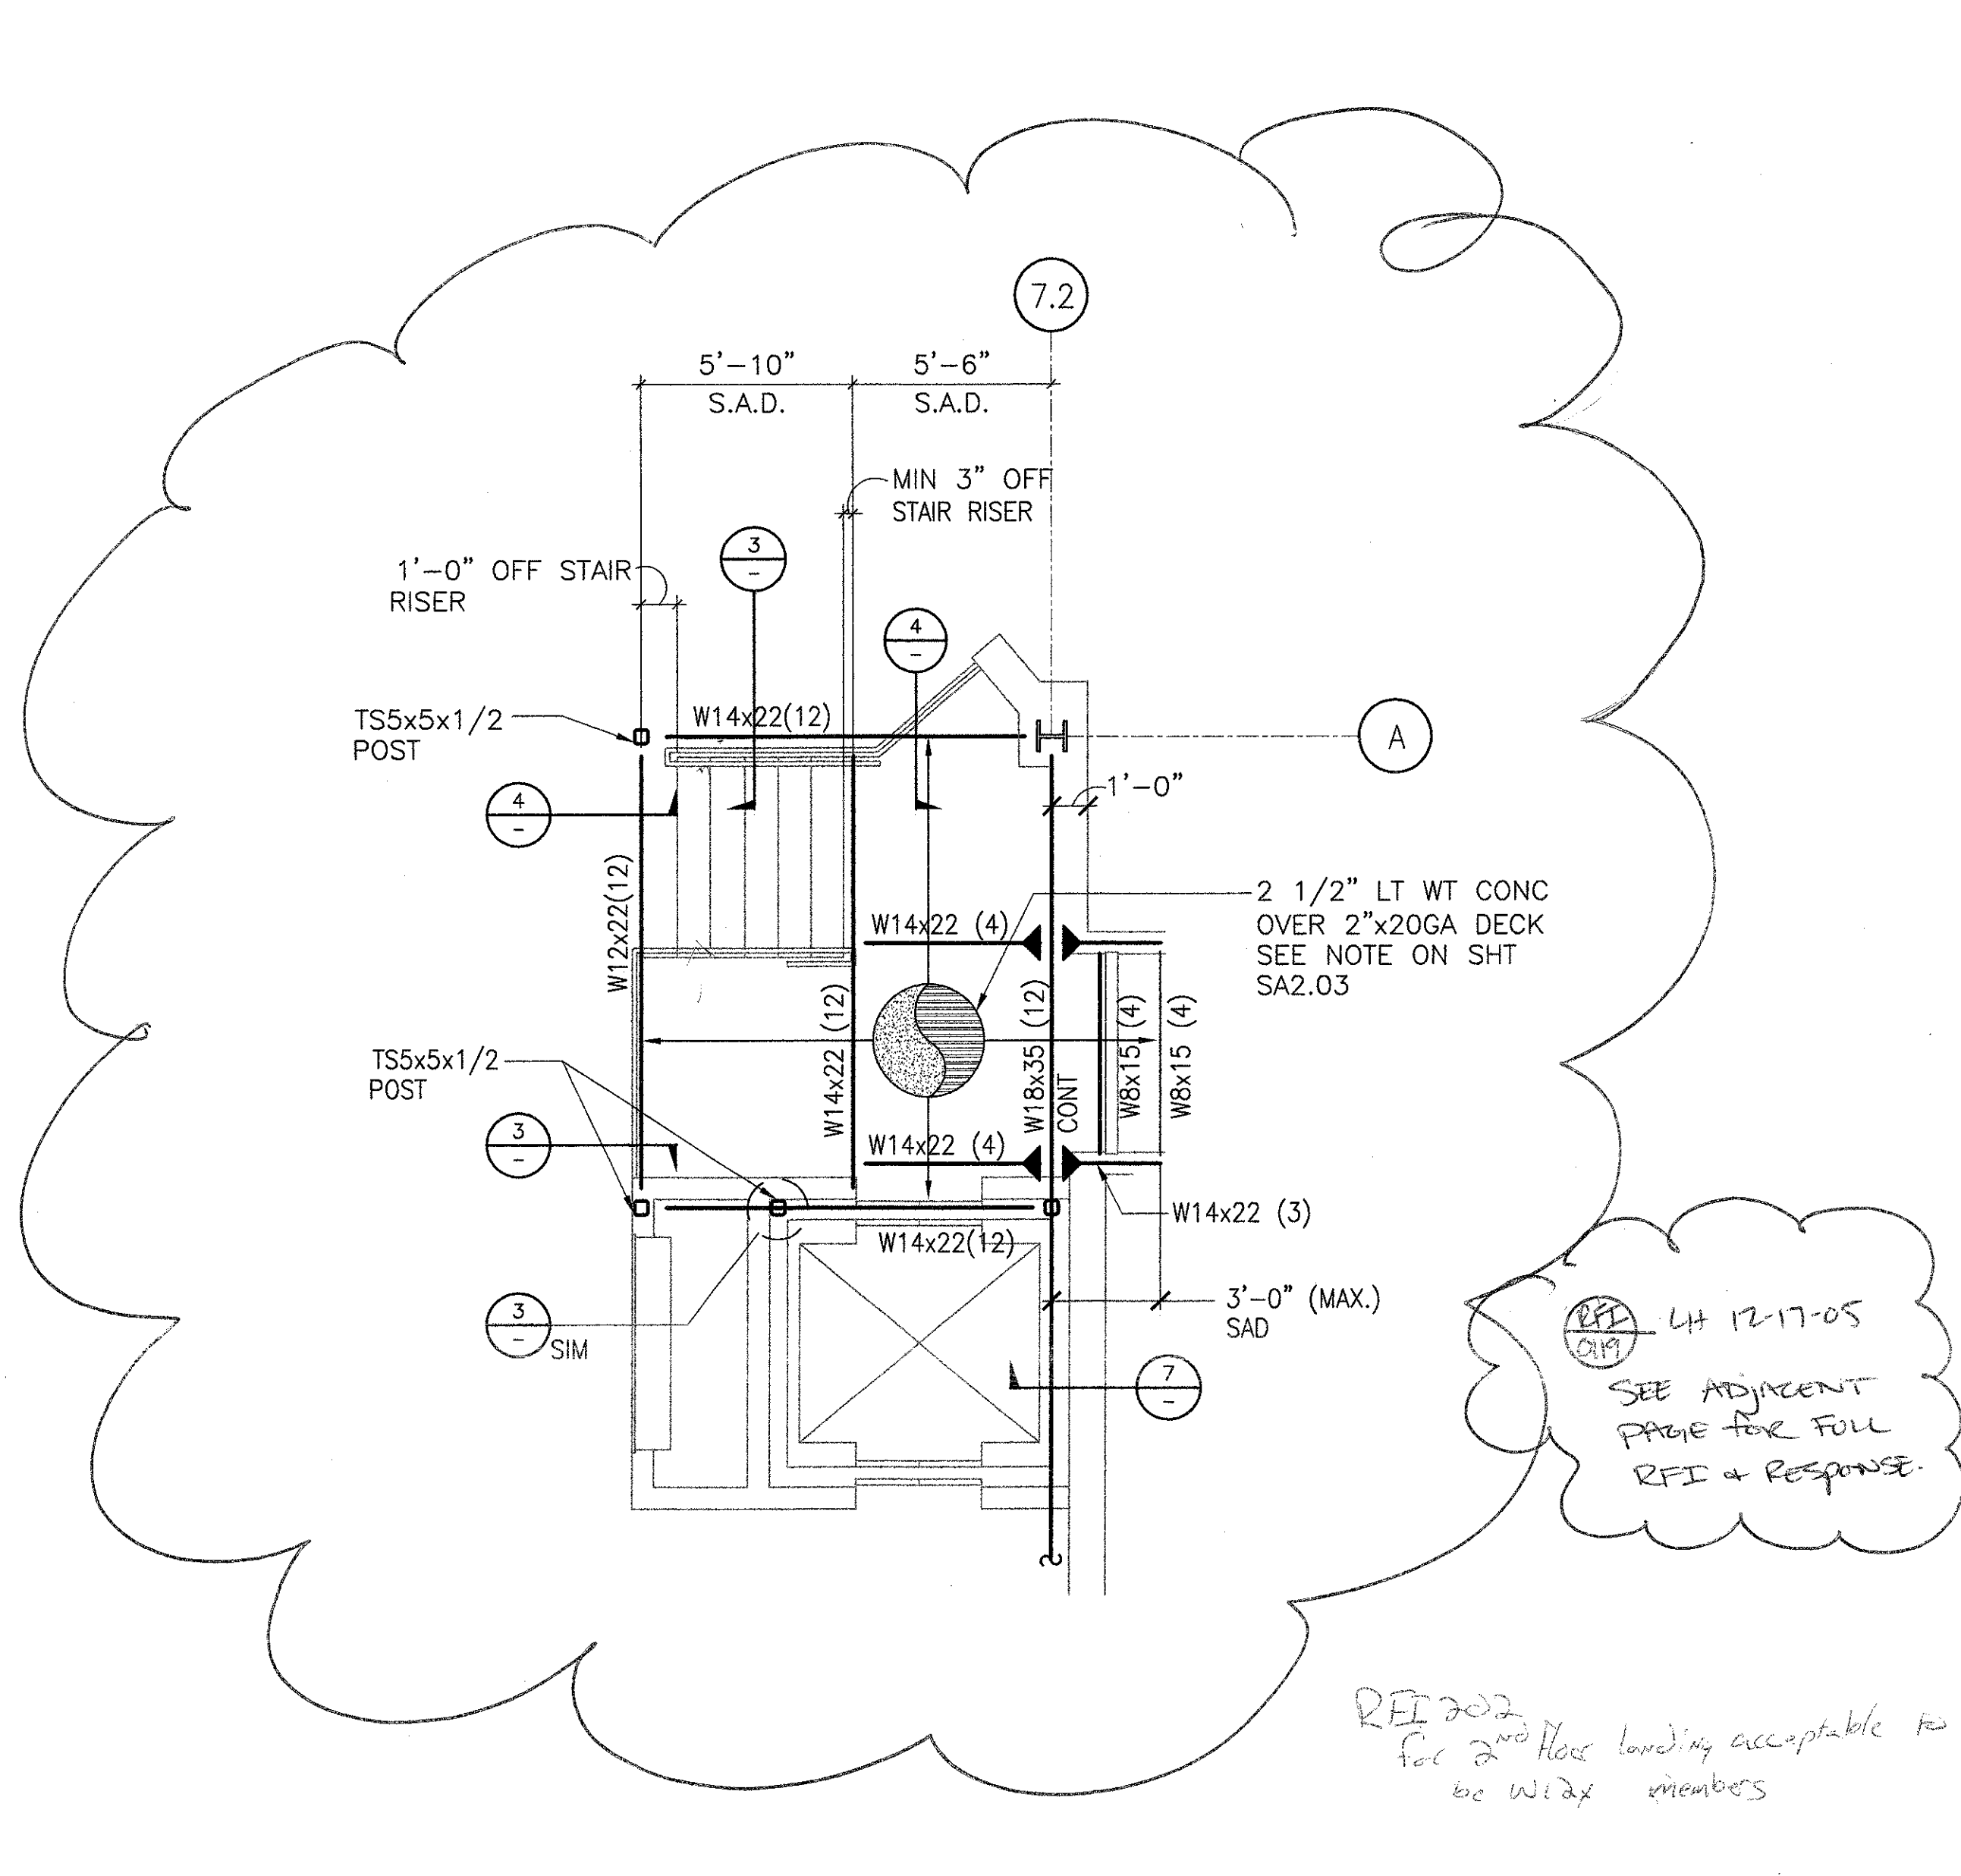 7.2
5'-10"
S.A.D.
5'-6"
S.A.D.
MIN 3" OFF
STAIR RISER
3
-
1'-0" OFF STAIR
RISER
4
-
TS5x5x1/2
POST
W14x22(12)
A
1'-0"
4
-
W12x22(12)
2 1/2" LT WT CONC
OVER 2"x20GA DECK
SEE NOTE ON SHT
SA2.03
W14x22 (4)
W14x22 (12)
W18x35 (12)
CONT
W8x15 (4)
W8x15 (4)
TS5x5x1/2
POST
3
-
W14x22 (4)
W14x22 (3)
W14x22(12)
3'-0" (MAX.)
SAD
3
-
SIM
7
-
RFI
0119
LH 12-17-05
SEE ADJACENT
PAGE for FULL
RFI & RESPONSE.
RFI 202
for 2ND floor landing acceptable to
be W12x members